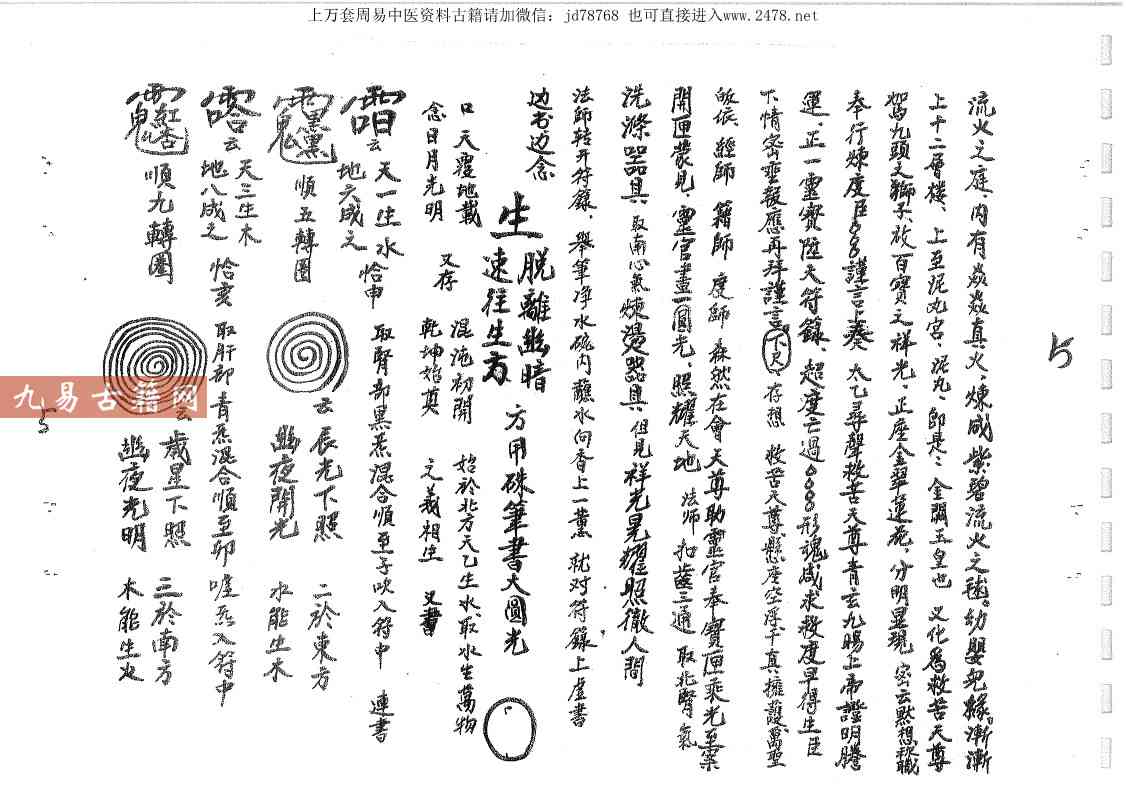 上万套周易中医资料古籍请加微信：jd78768 也可直接进入www.2478.net
流火之庭、内有焱焱真火、煉成紫碧流火之毬。幼嬰兒緣。漸漸
上十二層樓、上至泥丸宮、泥丸、即是：金闕玉皇也 又化為救苦天尊
駕九頭之獅子、放百寶之祥光、正座金翠蓮花，分明顯現 密云默想 秘職
奉行煉度臣
謹言上奏 太乙尋聲救苦天尊青玄九賜上帝證明騰
運、正一靈寶陞天符籙、超度亡過
形魂咸求救度早得生臣
下情密
報應再拜謹言
存想 救苦天尊懸座空浮千真擁護萬聖
皈依、經師 籍師 度師 森然在會天尊助靈官奉寶匣乘光至案
開匣蒙見、靈官畫一圓光、照耀天地 法师 扣齒三通 取北腎氣
洗滌器具、取南心氣煉燙器具、但見祥光晃耀照徹人間
法師转开符籙、舉筆净水碗内蘸水向香上一薰 就对符籙上虛書
边书边念
生 脫離幽暗 速往生方 方用硃筆書大圓光
口 天覆地載 念日月光明 又存 混沌初開 乾坤始奠 始於北方天乙生水取水生萬物 之義相生 又書
云 天一生水 地六成之 恰申 取腎部黑炁混合順至子吹入符中 連書
順五轉圈 云 辰光下照 幽夜開光 二於東方 水能生木
云 天三生木 地八成之 恰亥 取肝部青炁混合順至卯
炁入符中
順九轉圈 云 歲星下照 幽夜光明 三於南方 木能生火
5
5
九易古籍网